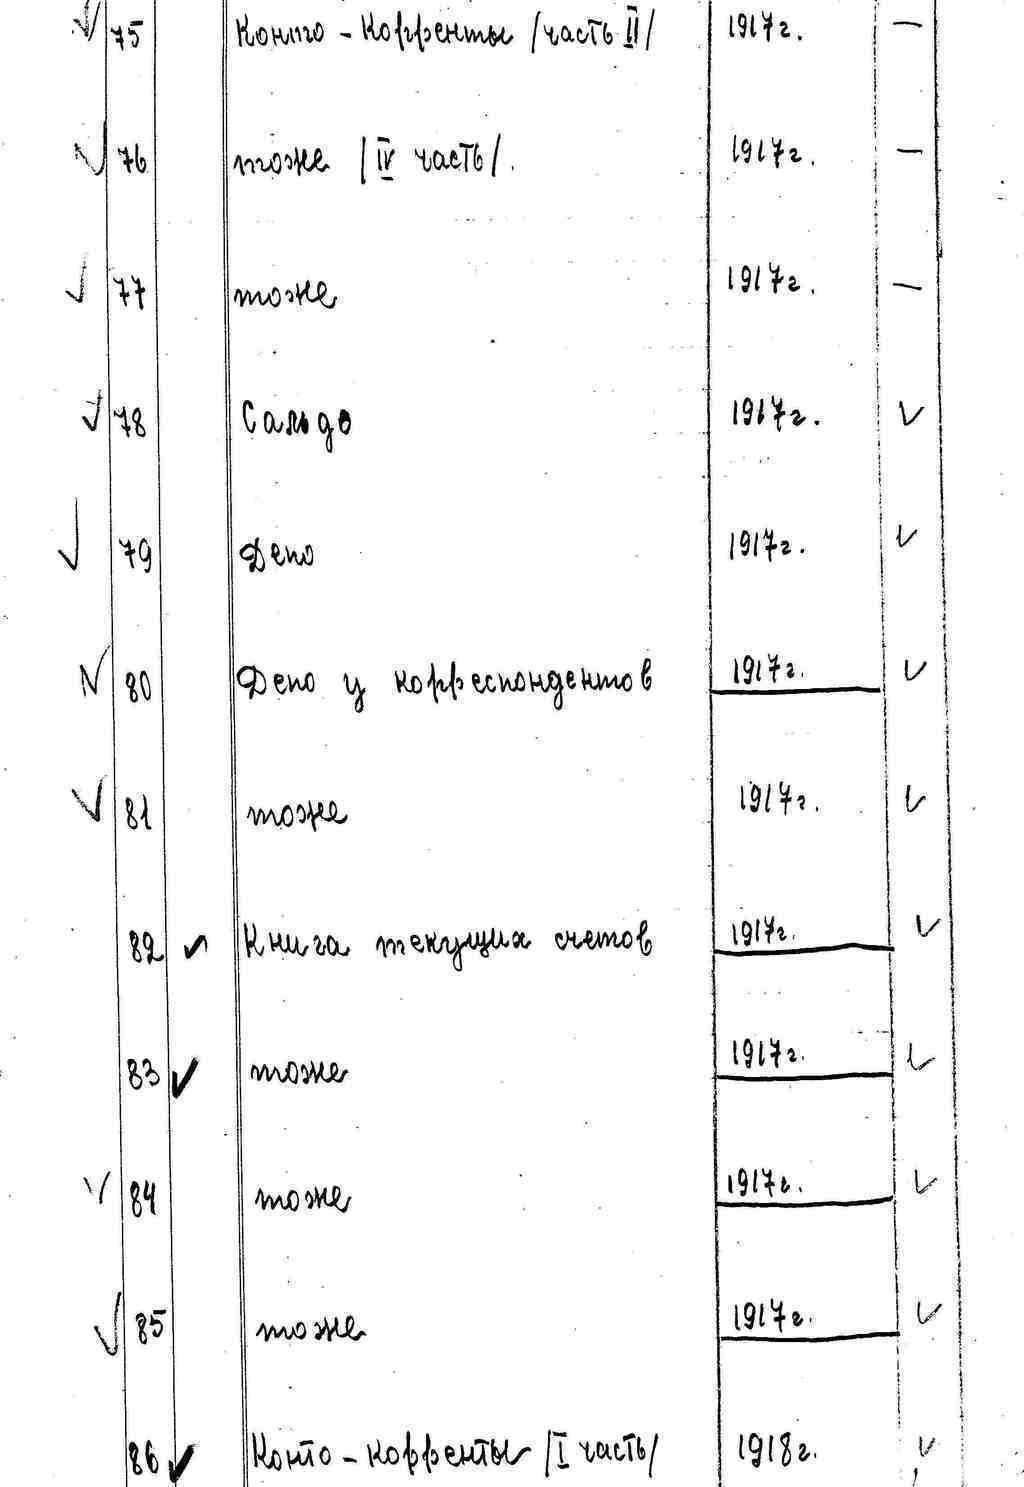 75 Конто-Корренты /часть II/ 1917г. —
76 тоже /IV часть/. 1917г. —
77 тоже 1917г. —
78 Сальдо 1917г. ✓
79 Депо 1917г. ✓
80 Депо у корреспондентов 1917г. ✓
81 тоже 1917г. ✓
82 ✓ Книга текущих счетов 1917г. ✓
83 ✓ тоже 1917г. ✓
84 тоже 1917г. ✓
85 тоже 1917г. ✓
86 ✓ Конто-корренты /I часть/ 1918г. ✓